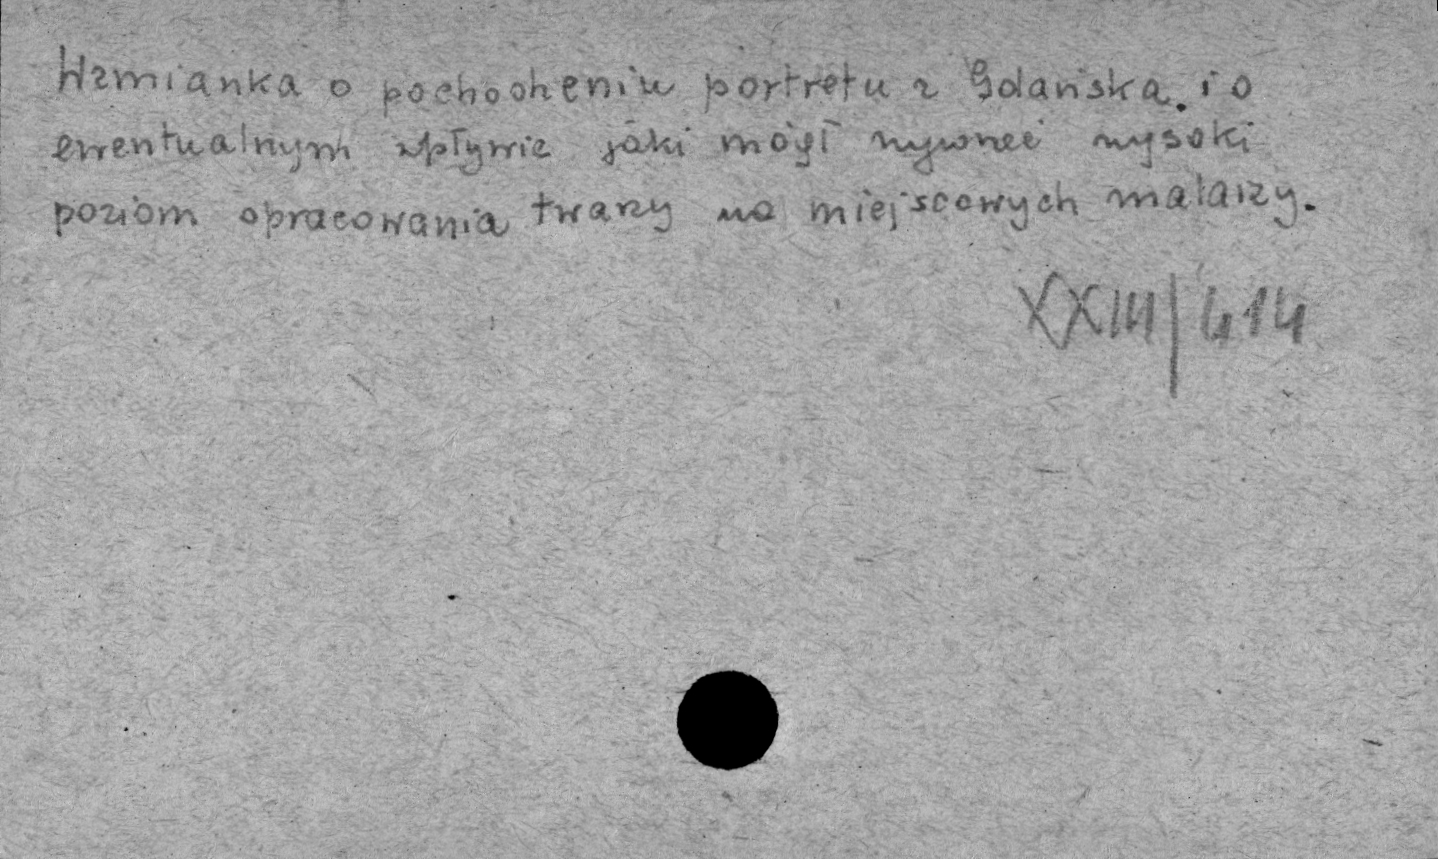 Wzmianka o pochodzeniu portretu z Gdańska. i o
ewentualnym wpływie jaki mógł wywrzeć wysoki
poziom opracowania twarzy na miejscowych malarzy.
XXIII/414